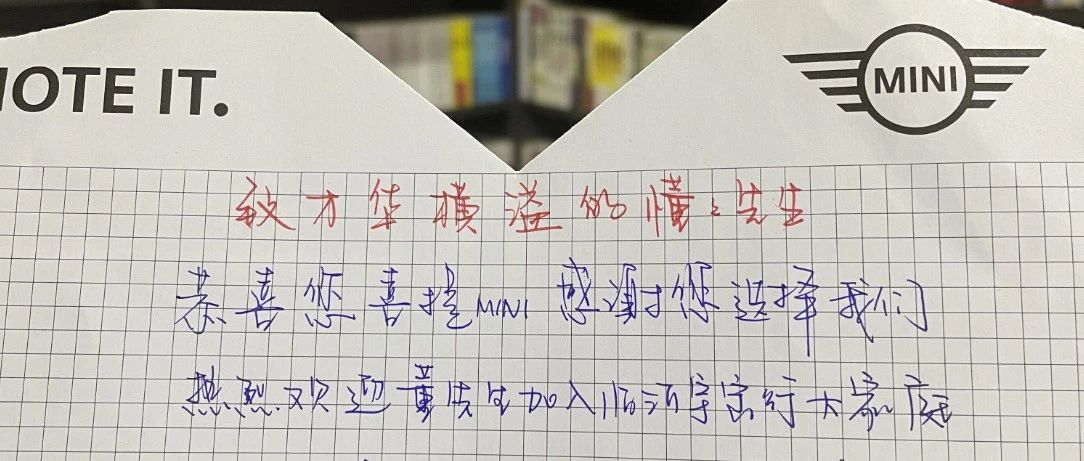 NOTE IT.
MINI
致才华横溢的懂々先生
恭喜您喜提MINI 感谢您选择我们
热烈欢迎董先生加入临沂宇宝行大家庭